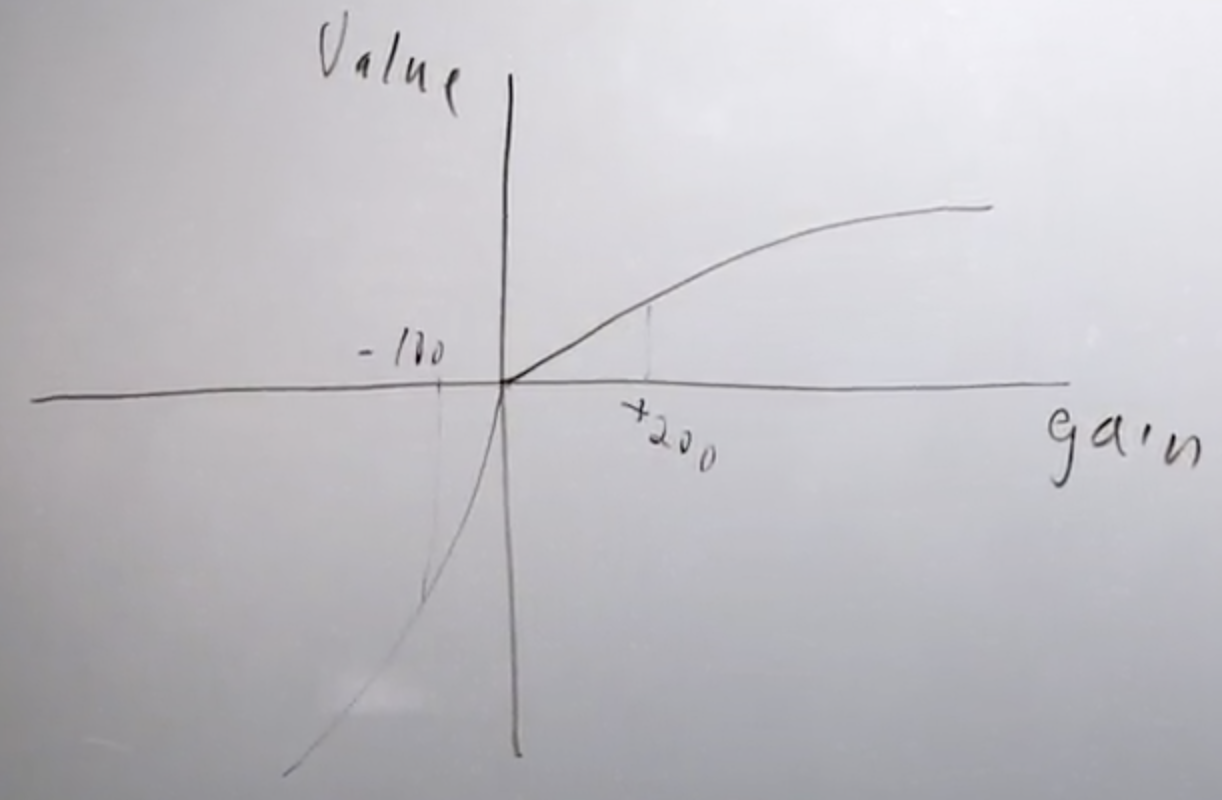 Value
- 100
+200
gain